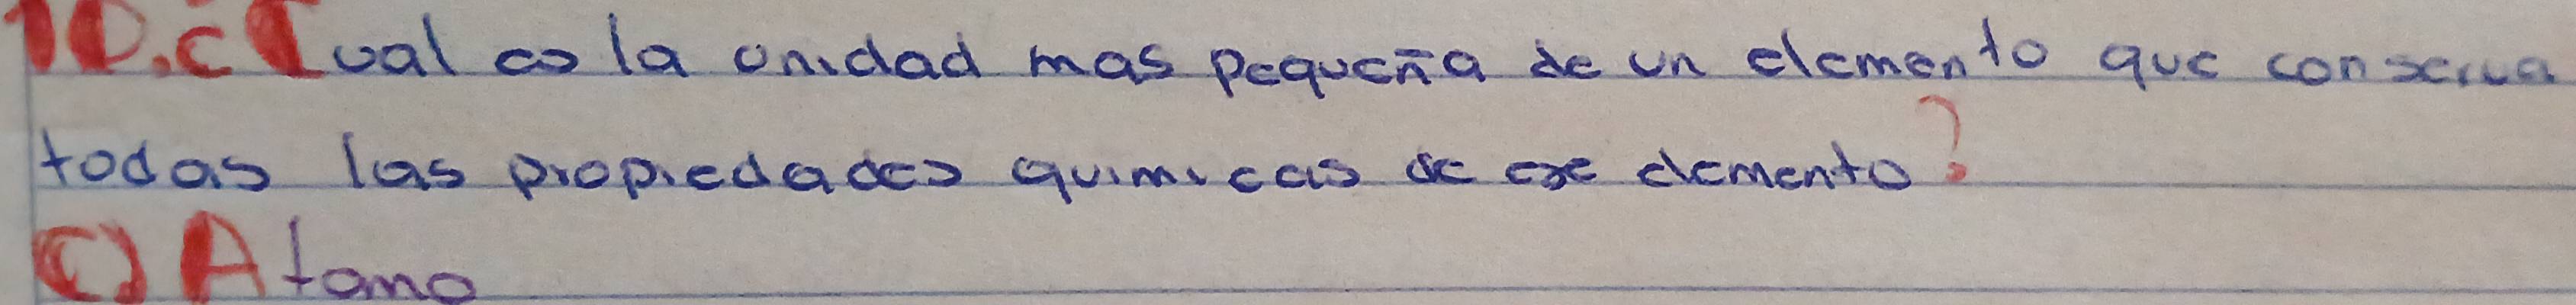 10.¿Cual es la unidad mas pequeña de un elemento que conserva
todas las propiedades quimicas de ese elemento?
C) Atomo